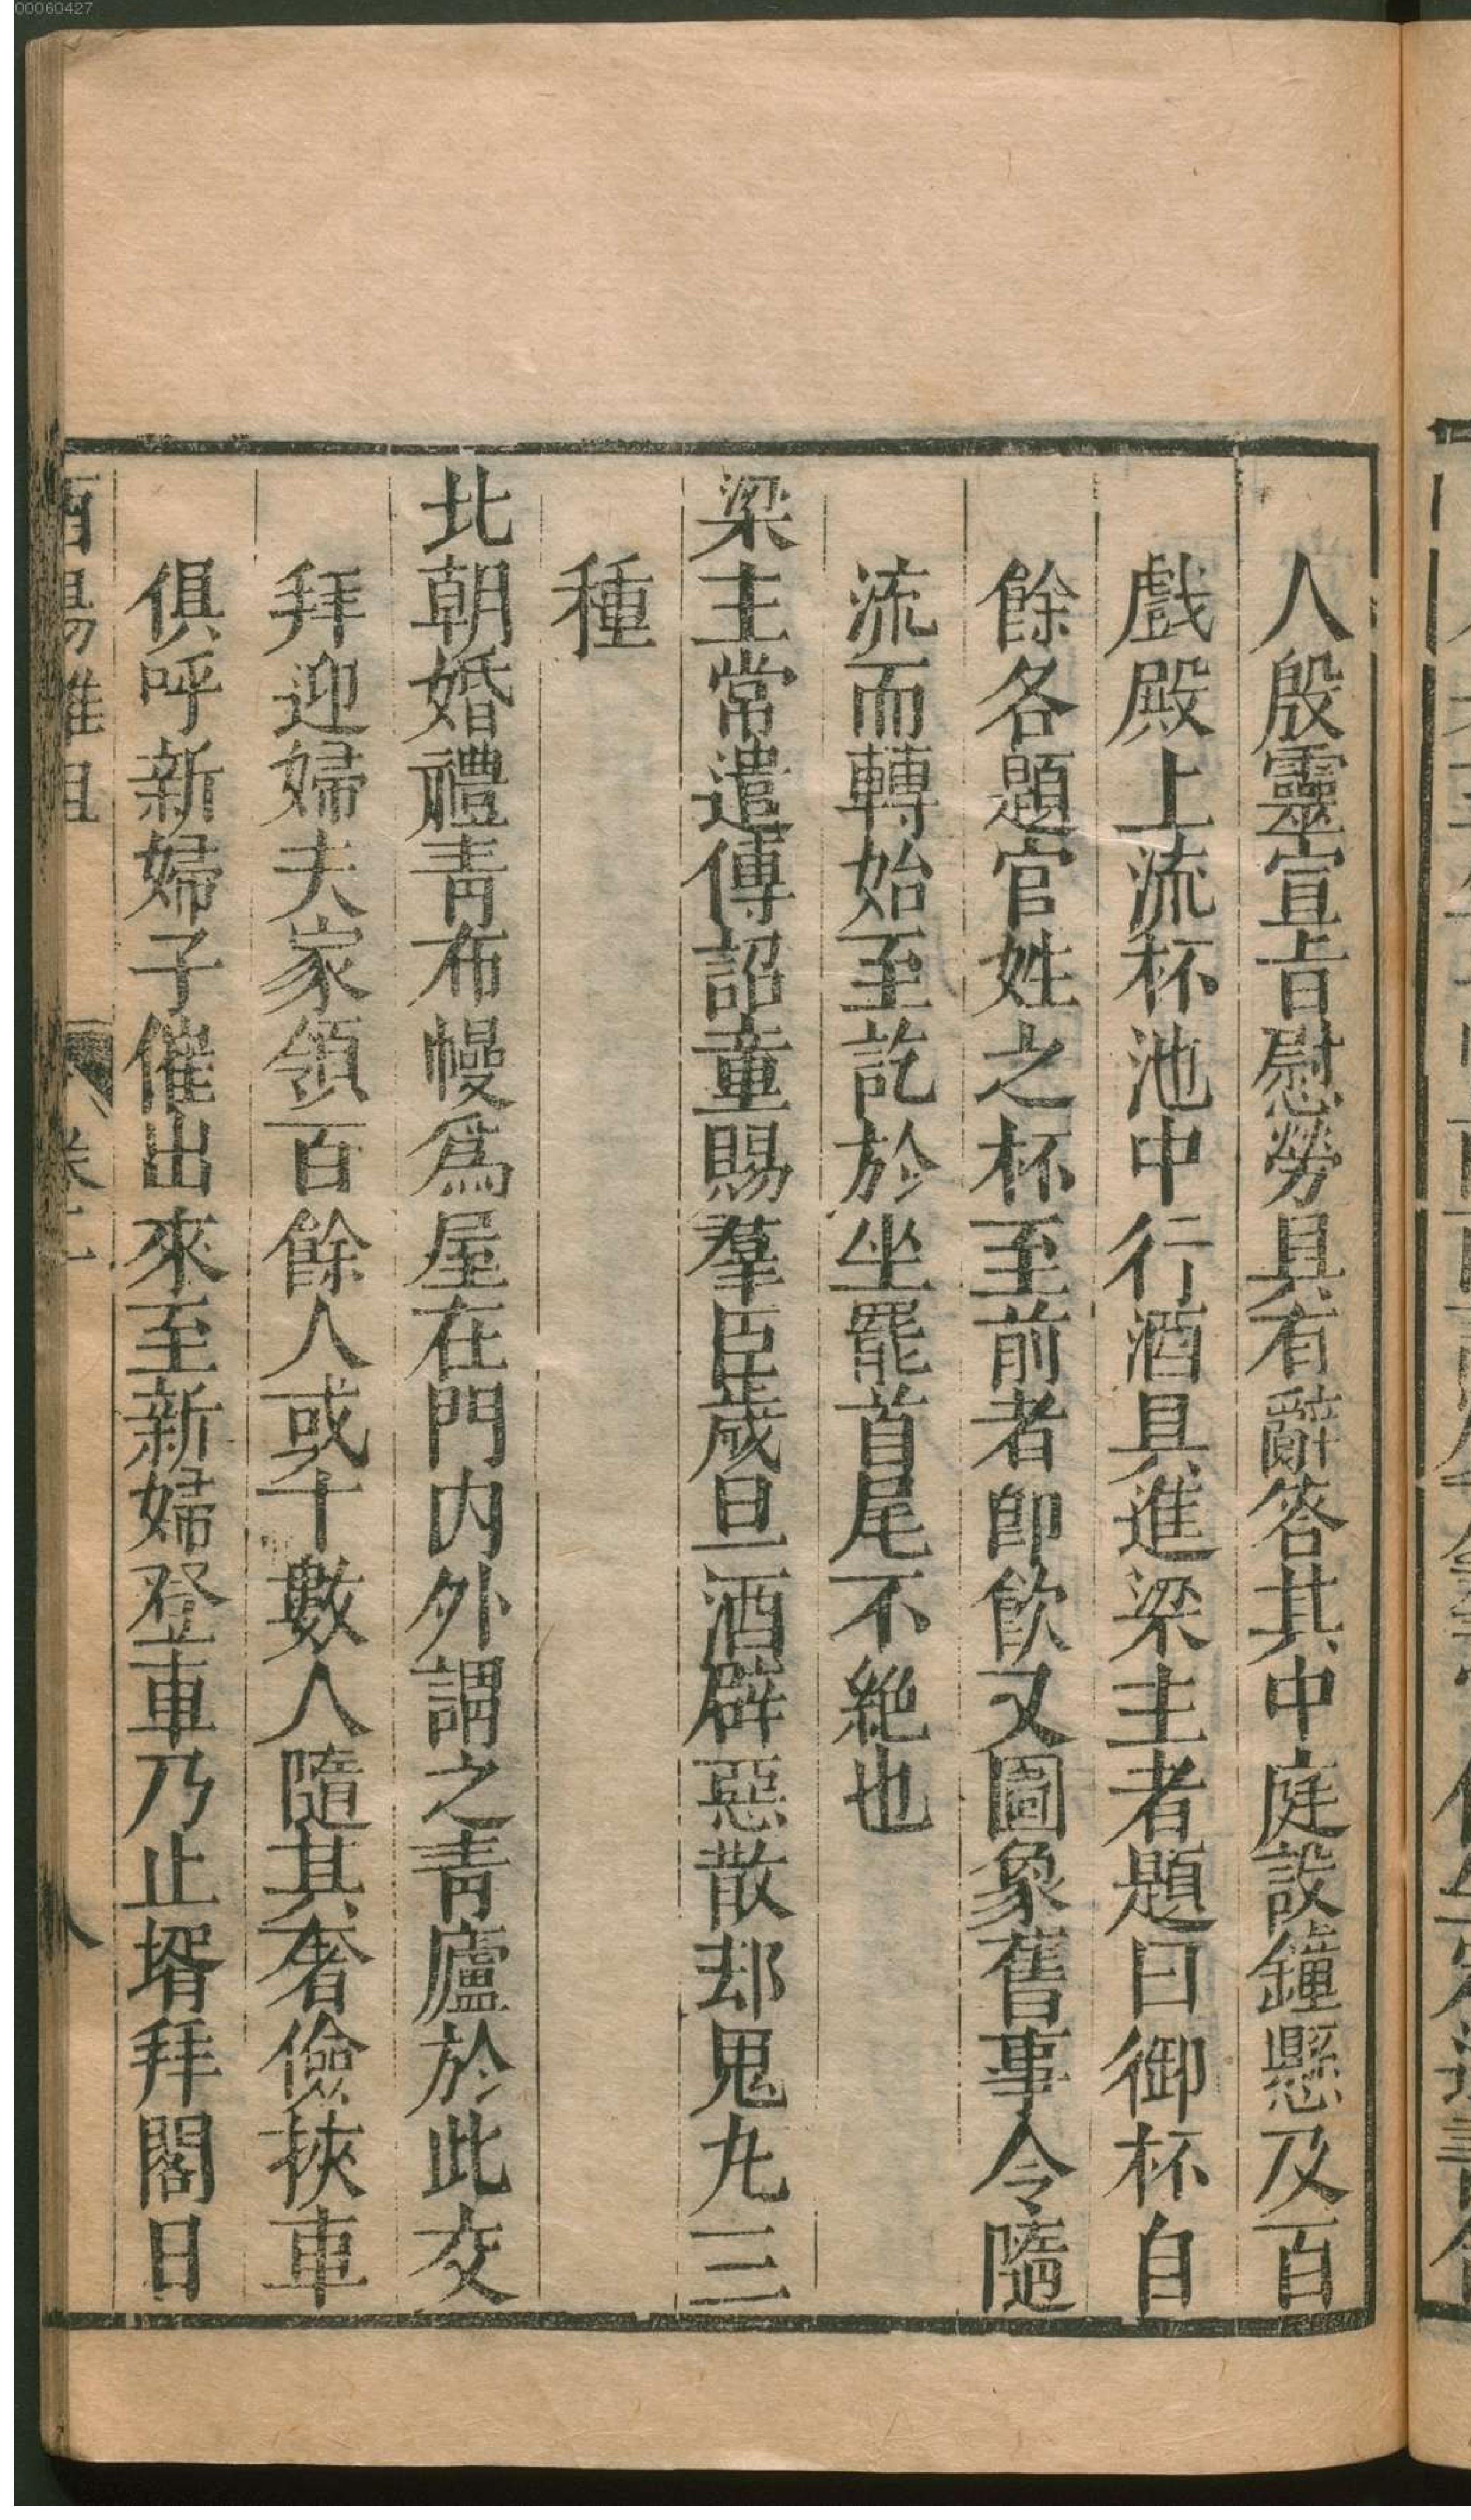 00060427
人殷靈宣旨慰勞具有辭答其中庭設鐘懸及百
戲殿上流杯池中行酒具進梁主者題曰御杯自
餘各題官姓之杯至前者卽飮又圖象舊事令隨
流而轉始至訖於坐罷首尾不絶也
梁主常遣傳詔童賜羣臣歲旦酒辟惡散却鬼丸三
種
北朝婚禮靑布幔爲屋在門内外謂之靑廬於此交
拜迎婦夫家領百餘人或十數人隨其奢儉挾車
俱呼新婦子催出來至新婦登車乃止壻拜閣日